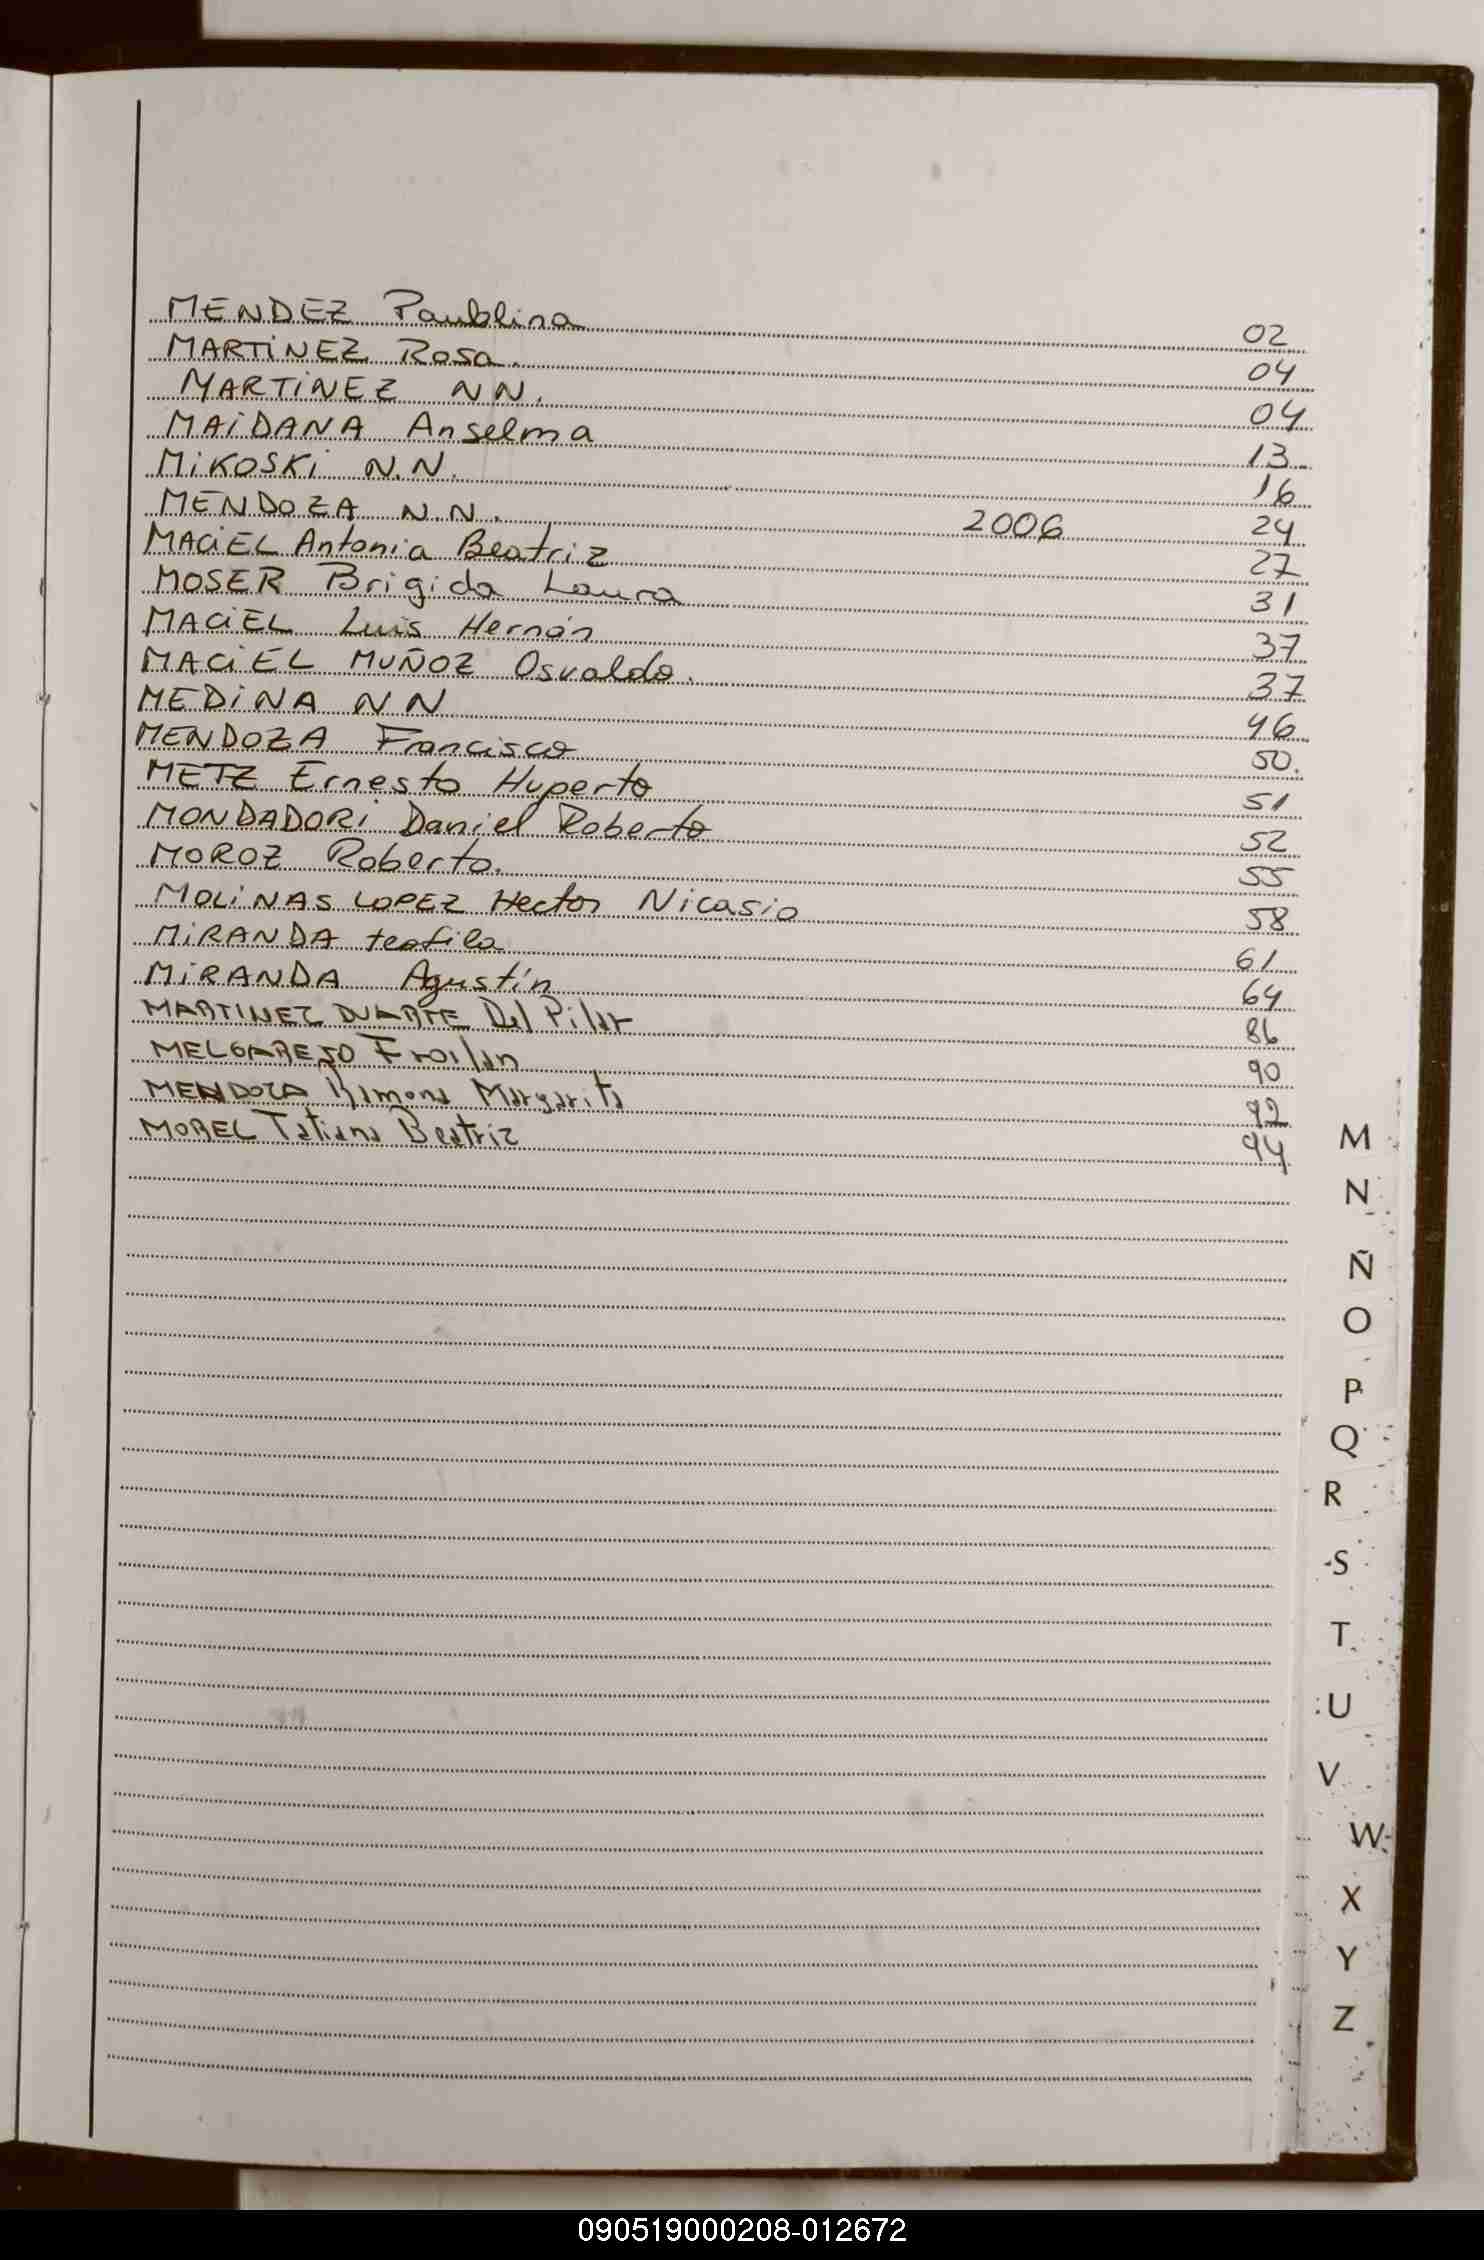 MENDEZ Paublina 02
MARTINEZ Rosa. 04
MARTINEZ NN. 04
MAIDANA Anselma 13
MIKOSKI N.N. 16
MENDOZA N.N. 2006 24
MACIEL Antonia Beatriz 27
MOSER Brigida Laura 31
MACIEL Luis Hernán 37
MACIEL MUÑOZ Osvaldo. 37
MEDINA NN 46
MENDOZA Francisco 50.
METZ Ernesto Huperto 51
MONDADORI Daniel Roberto 52
MOROZ Roberto. 55
MOLINAS LOPEZ Hector Nicasio 58
MIRANDA teofila 61
MIRANDA Agustín 64
MARTINEZ DUARTE Del Pilar 86
MELGAREJO Froilan 90
MENDOZA Ramona Margarita 92
MOREL Tatiana Beatriz 94
M
N
Ñ
O
P
Q
R
S
T
U
V
W
X
Y
Z
090519000208-012672